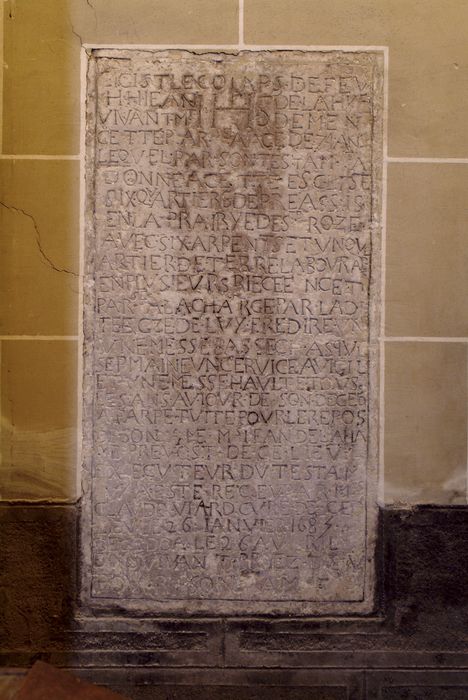 CI GIST LE COLAPS DE FEV
HHIEAN IHS DELAHAE
VIVANT MRE DEMEN
CETTE PAR ACE DE IAN
LEQVEL PAR SON TESTAMTA
DONNE A CETTE ESGLISE
SIX QVARTIERS DE PRE ASSIS
EN LA PRAIRYE DE ST ROZE
AVEC SIX ARPENTS ET VN QV
ARTIER DE TERRE LABOVRA
EN PLVSIEVRS PIECE ENCET
PAR A LA CHARGE PAR LAD
TE EGZE DE LVY FERE DIRE VN
VNE MESSE BASSE CHASQVE
SEPMAINE VN CERVICE A VIGIL
ET VNE MESSE HAVLTE TOVS
LES ANS AV IOVR DE SON DECED
A PARPETVITTE POVR LE REPOS
DE SON AME MR IEAN DE LA HA
YE PREVOST DE CE LIEV
EXECVTEVR DV TESTAM
QVI A ESTE RECEV PAR MR
CLAVDE VIARD CVRE DE CE
LIEV 26 IANVIER 1683
26 AVRIL
SVIVANT PRIEZ DIEV
POVR SON AME